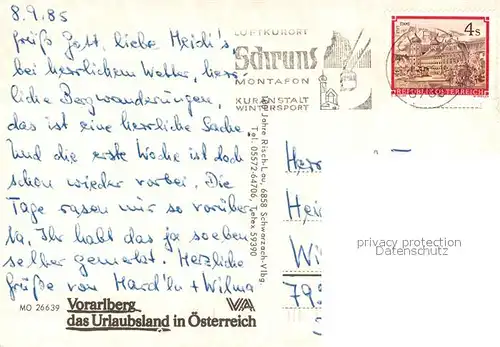 8.9.85
Grüß Gott, liebe Heidi's
bei herrlichem Wetter, herr-
liche Bergwanderungen,
das ist eine herrliche Sache.
Und die erste Woche ist doch
schon wieder vorbei. Die
Tage rasen nur so vorüber
Na, Ihr habt das ja soeben
selber gemerkt. Herzliche
Grüße von Hard'ln + Wilma
MO 26639
Vorarlberg
das Urlaubsland in Österreich
VA
LUFTKURORT
Schruns
MONTAFON
KURANSTALT
WINTERSPORT
Jahre Risch-Lau, 6858 Schwarzach-Vlbg.
Tel. 05572-64706, Telex 59390
STAMS
4 S
REPUBLIK ÖSTERREICH
Herr
Hei
Wi
793
privacy protection
Datenschutz